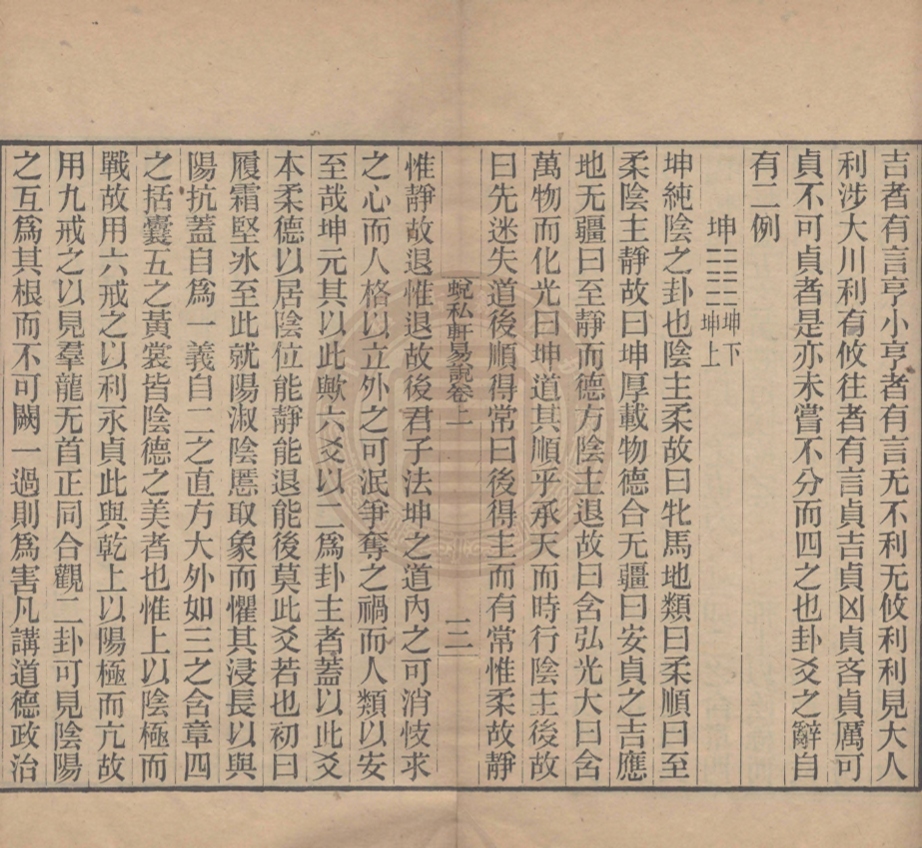 吉者有言亨小亨者有言无不利无攸利利見大人
利涉大川利有攸往者有言貞吉貞凶貞吝貞厲可
貞不可貞者是亦未嘗不分而四之也卦爻之辭自
有二例
坤䷁坤下坤上
坤純陰之卦也陰主柔故曰牝馬地類曰柔順曰至
柔陰主靜故曰坤厚載物德合无疆曰安貞之吉應
地无疆曰至靜而德方陰主退故曰含弘光大曰含
萬物而化光曰坤道其順乎承天而時行陰主後故
曰先迷失道後順得常曰後得主而有常惟柔故靜
蛻私軒易說卷上 三
惟靜故退惟退故後君子法坤之道內之可消忮求
之心而人格以立外之可泯爭奪之禍而人類以安
至哉坤元其以此歟六爻以二爲卦主者蓋以此爻
本柔德以居陰位能靜能退能後莫此爻若也初曰
履霜堅冰至此就陽淑陰慝取象而懼其浸長以與
陽抗蓋自爲一義自二之直方大外如三之含章四
之括囊五之黃裳皆陰德之美者也惟上以陰極而
戰故用六戒之以利永貞此與乾上以陽極而亢故
用九戒之以見羣龍无首正同合觀二卦可見陰陽
之互爲其根而不可闕一過則爲害凡講道德政治